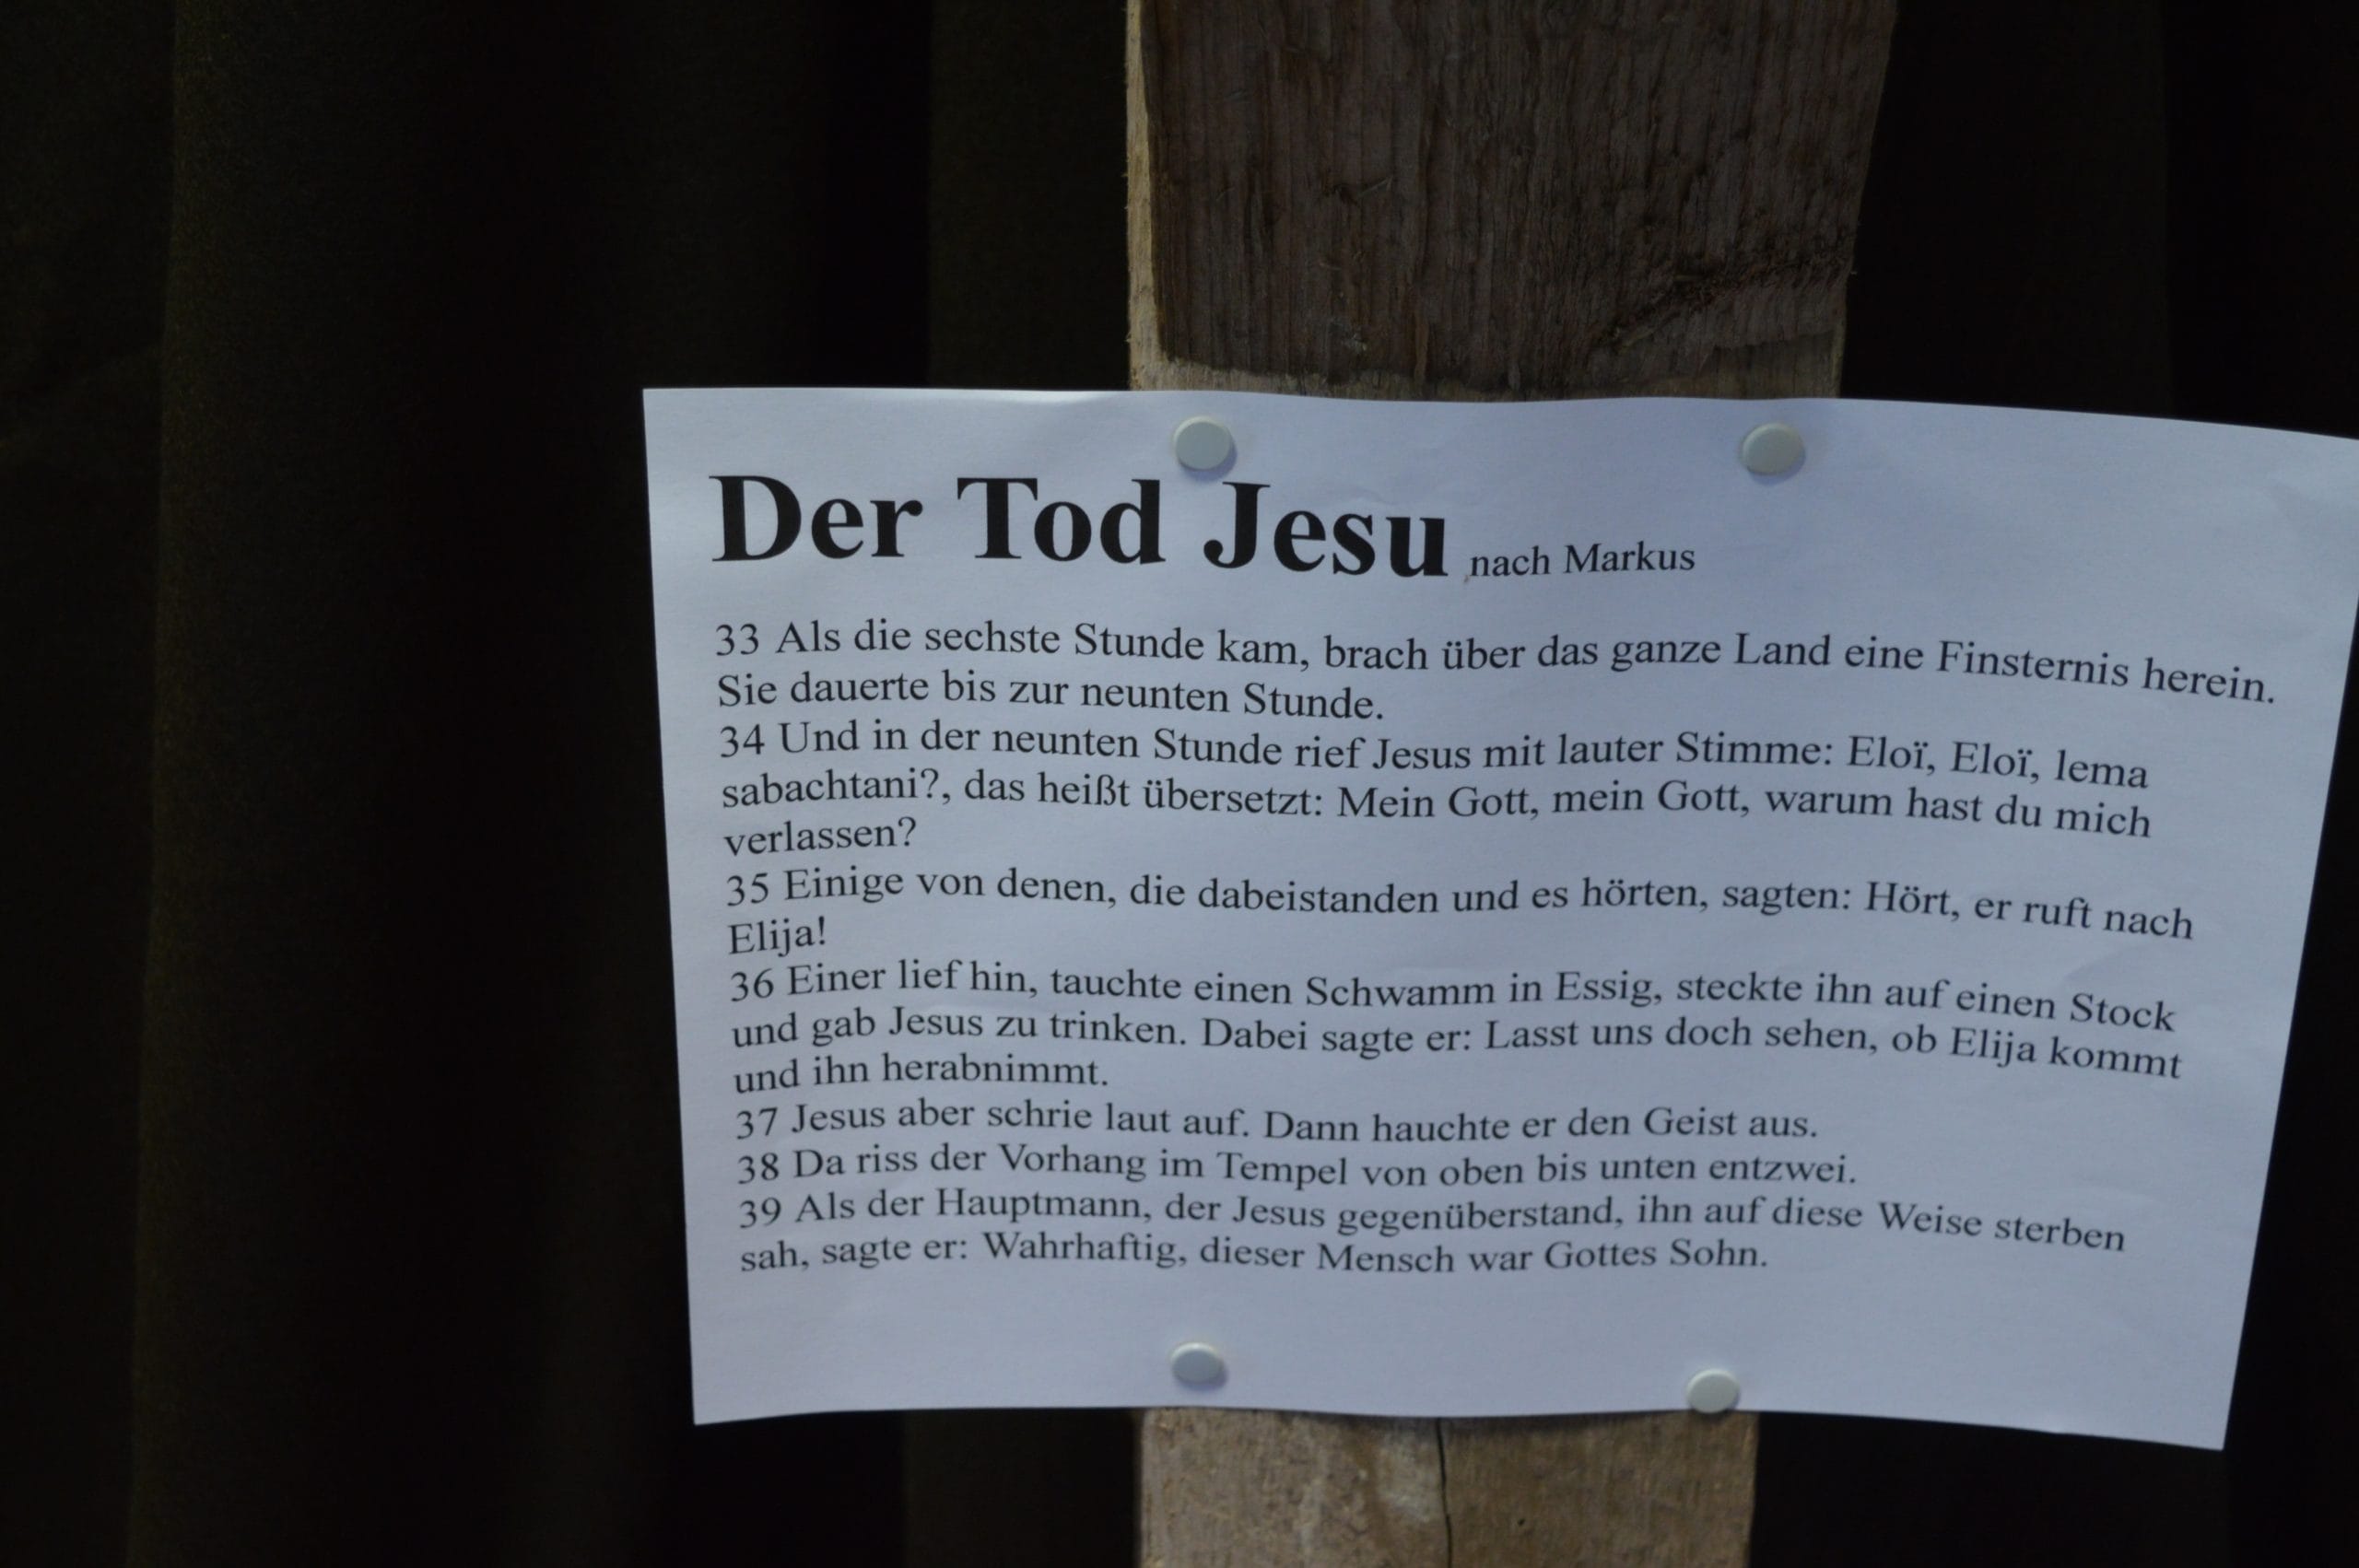 Der Tod Jesu nach Markus
33 Als die sechste Stunde kam, brach über das ganze Land eine Finsternis herein.
Sie dauerte bis zur neunten Stunde.
34 Und in der neunten Stunde rief Jesus mit lauter Stimme: Eloï, Eloï, lema
sabachtani?, das heißt übersetzt: Mein Gott, mein Gott, warum hast du mich
verlassen?
35 Einige von denen, die dabeistanden und es hörten, sagten: Hört, er ruft nach
Elija!
36 Einer lief hin, tauchte einen Schwamm in Essig, steckte ihn auf einen Stock
und gab Jesus zu trinken. Dabei sagte er: Lasst uns doch sehen, ob Elija kommt
und ihn herabnimmt.
37 Jesus aber schrie laut auf. Dann hauchte er den Geist aus.
38 Da riss der Vorhang im Tempel von oben bis unten entzwei.
39 Als der Hauptmann, der Jesus gegenüberstand, ihn auf diese Weise sterben
sah, sagte er: Wahrhaftig, dieser Mensch war Gottes Sohn.